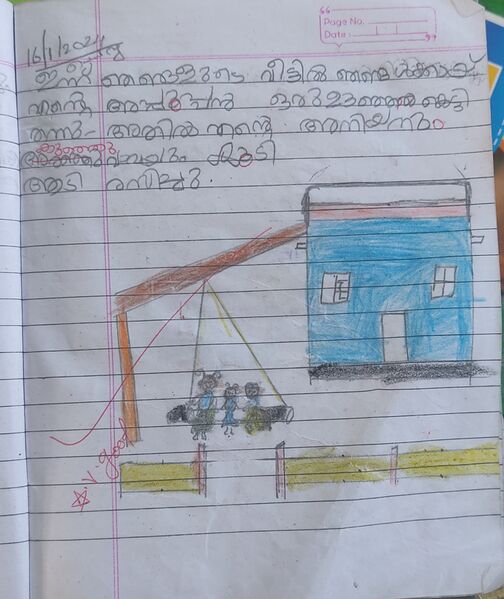 Page No.
Date :
16/1/2024
ഇന്ന് ഞങ്ങളുടെ വീട്ടിൽ ഞങ്ങൾക്കായ്
എന്റെ അപ്പൂപ്പൻ ഒരു ഊഞ്ഞാൽ കെട്ടി
തന്നു- അതിൽ എന്റെ അനിയനും
കുഞ്ഞു
കൂടി
ആടി രസിച്ചു.
V. good